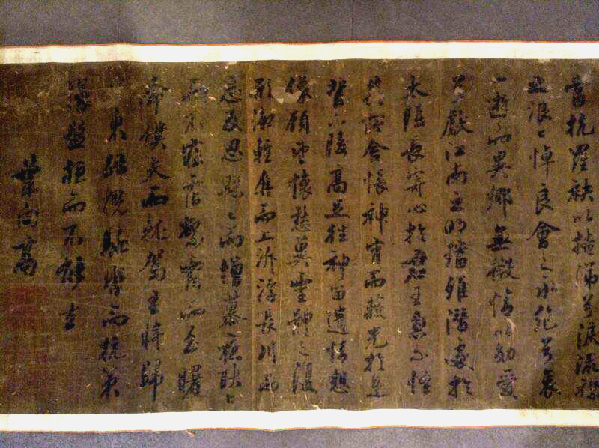 抗羅袂以掩涕兮淚流襟
之浪々悼良會之永絕兮哀
一逝而異鄉無微情以効愛
兮獻江南之明璫雖潛處於
太陰長寄心於君王忽不悟
其所舍悵神宵而蔽光於是
背下陵高足往神留遺情想
像顧望懷愁冀靈體之復
形御輕舟而上泝浮長川而
忘反思緜々而增慕夜耿々
而不寐霑繁霜而至曙
命僕夫而就駕吾將歸
東路攬騑轡而抗策
悵盤桓而不能去
葉向高